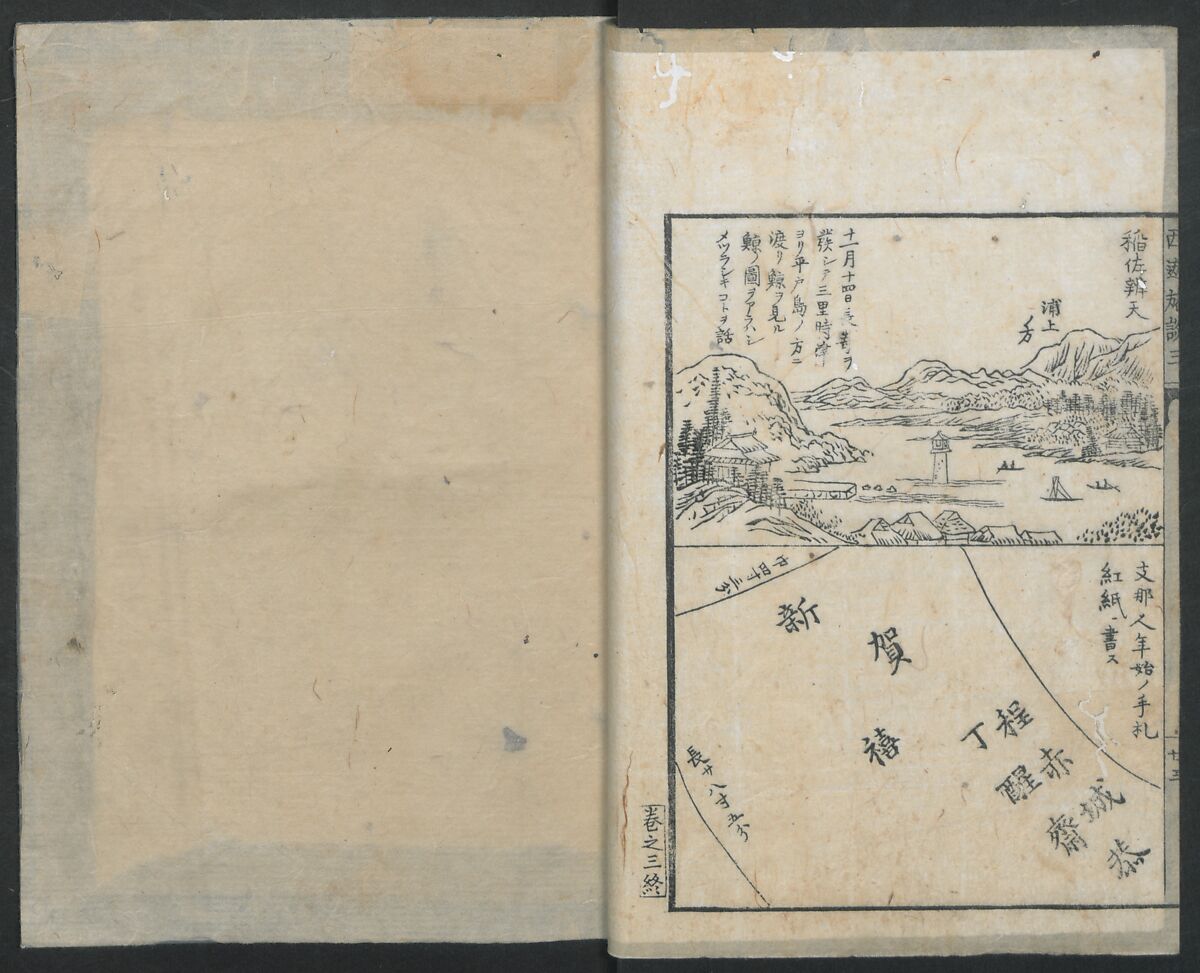 西遊旅譚三
稲佐辨天
浦上
ノ方
十一月十四日長崎ヲ
發シテ三里時津
ヨリ平戸島ノ方ニ
渡リ鯨ヲ見ル
鯨ノ圖ヲアラハシ
メツラシキコトヲ話
支那人年始ノ手札
紅紙ニ書ス
廿五
恭
賀
新
禧
程赤城
丁醒齋
巾四寸三分
長サ八寸五分
卷之三終